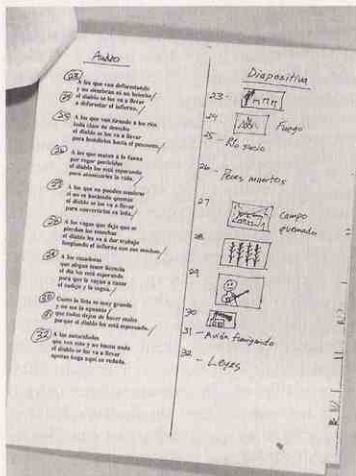 Audio
23 A los que van deforestando
y no siembran ni un helecho
24 el diablo se los va a llevar
a deforestar el infierno.
25 A los que van tirando a los ríos
toda clase de desecho
el diablo se los va a llevar
para hundirlos hasta el pescuezo.
26 A los que maten a la fauna
por regar pesticidas
el diablo los está esperando
para atomizarles la vida.
27 A los que no pueden sembrar
si no es haciendo quemas
el diablo se los va a llevar
para convertirlos en leña.
28 A los vagos que deja que se
pierdan las cosechas
el diablo les va a dar trabajo
limpiando el infierno con sus mechas.
29 A los cazadores
que alegan tener licencia
el día los está esperando
para que le vayan a cazar
el conejo y la yegua.
30 Como la lista es muy grande
y no me la aguanto
31 que todos dejen de hacer males
porque el diablo los está esperando.
32 A las autoridades
que ven esto y no hacen nada
el diablo se los va a llevar
apenas haga aquí su redada.
Diapositiva
23 -
24 Fuego
25 - Río sucio
26 - Peces muertos
27 Campo
quemado
28
29
30
31 - Avión fumigando
32 - Leyes